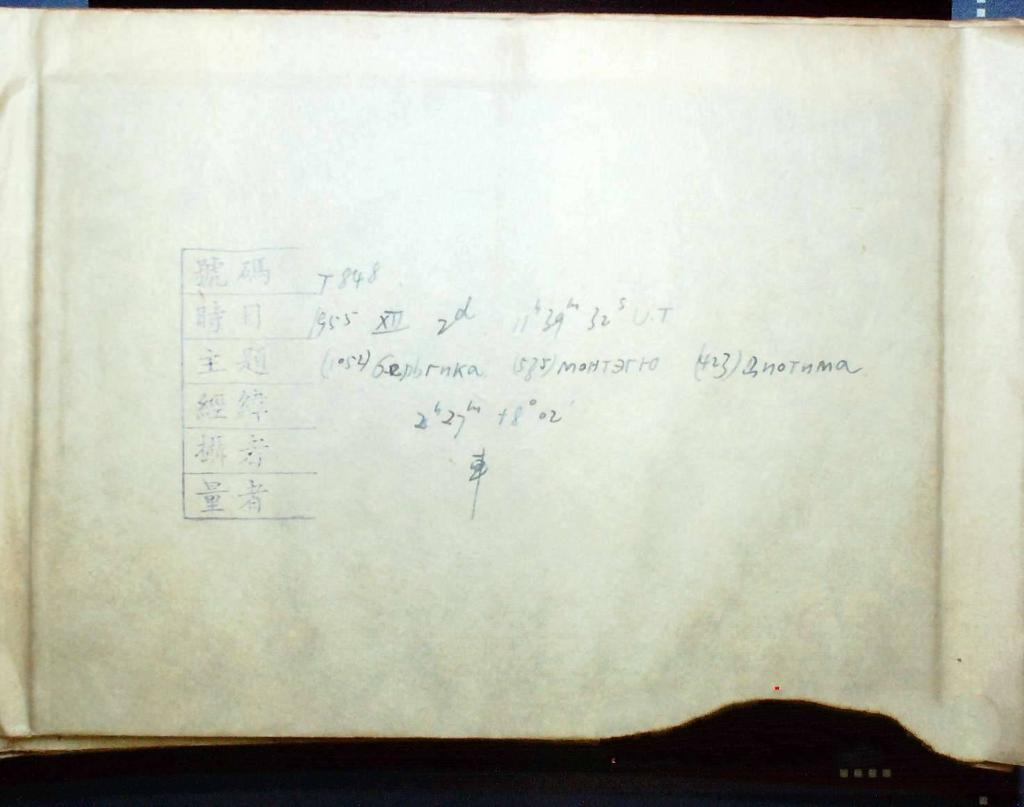 號碼 T 848
時日 1955 XII 2ᵈ 11ʰ 39ᵐ 32ˢ U.T
主題 (1052) бельгика (535) монтэгю (423) Диотима
經緯 2ʰ 27ᵐ +8° 02′
攝者 車
量者